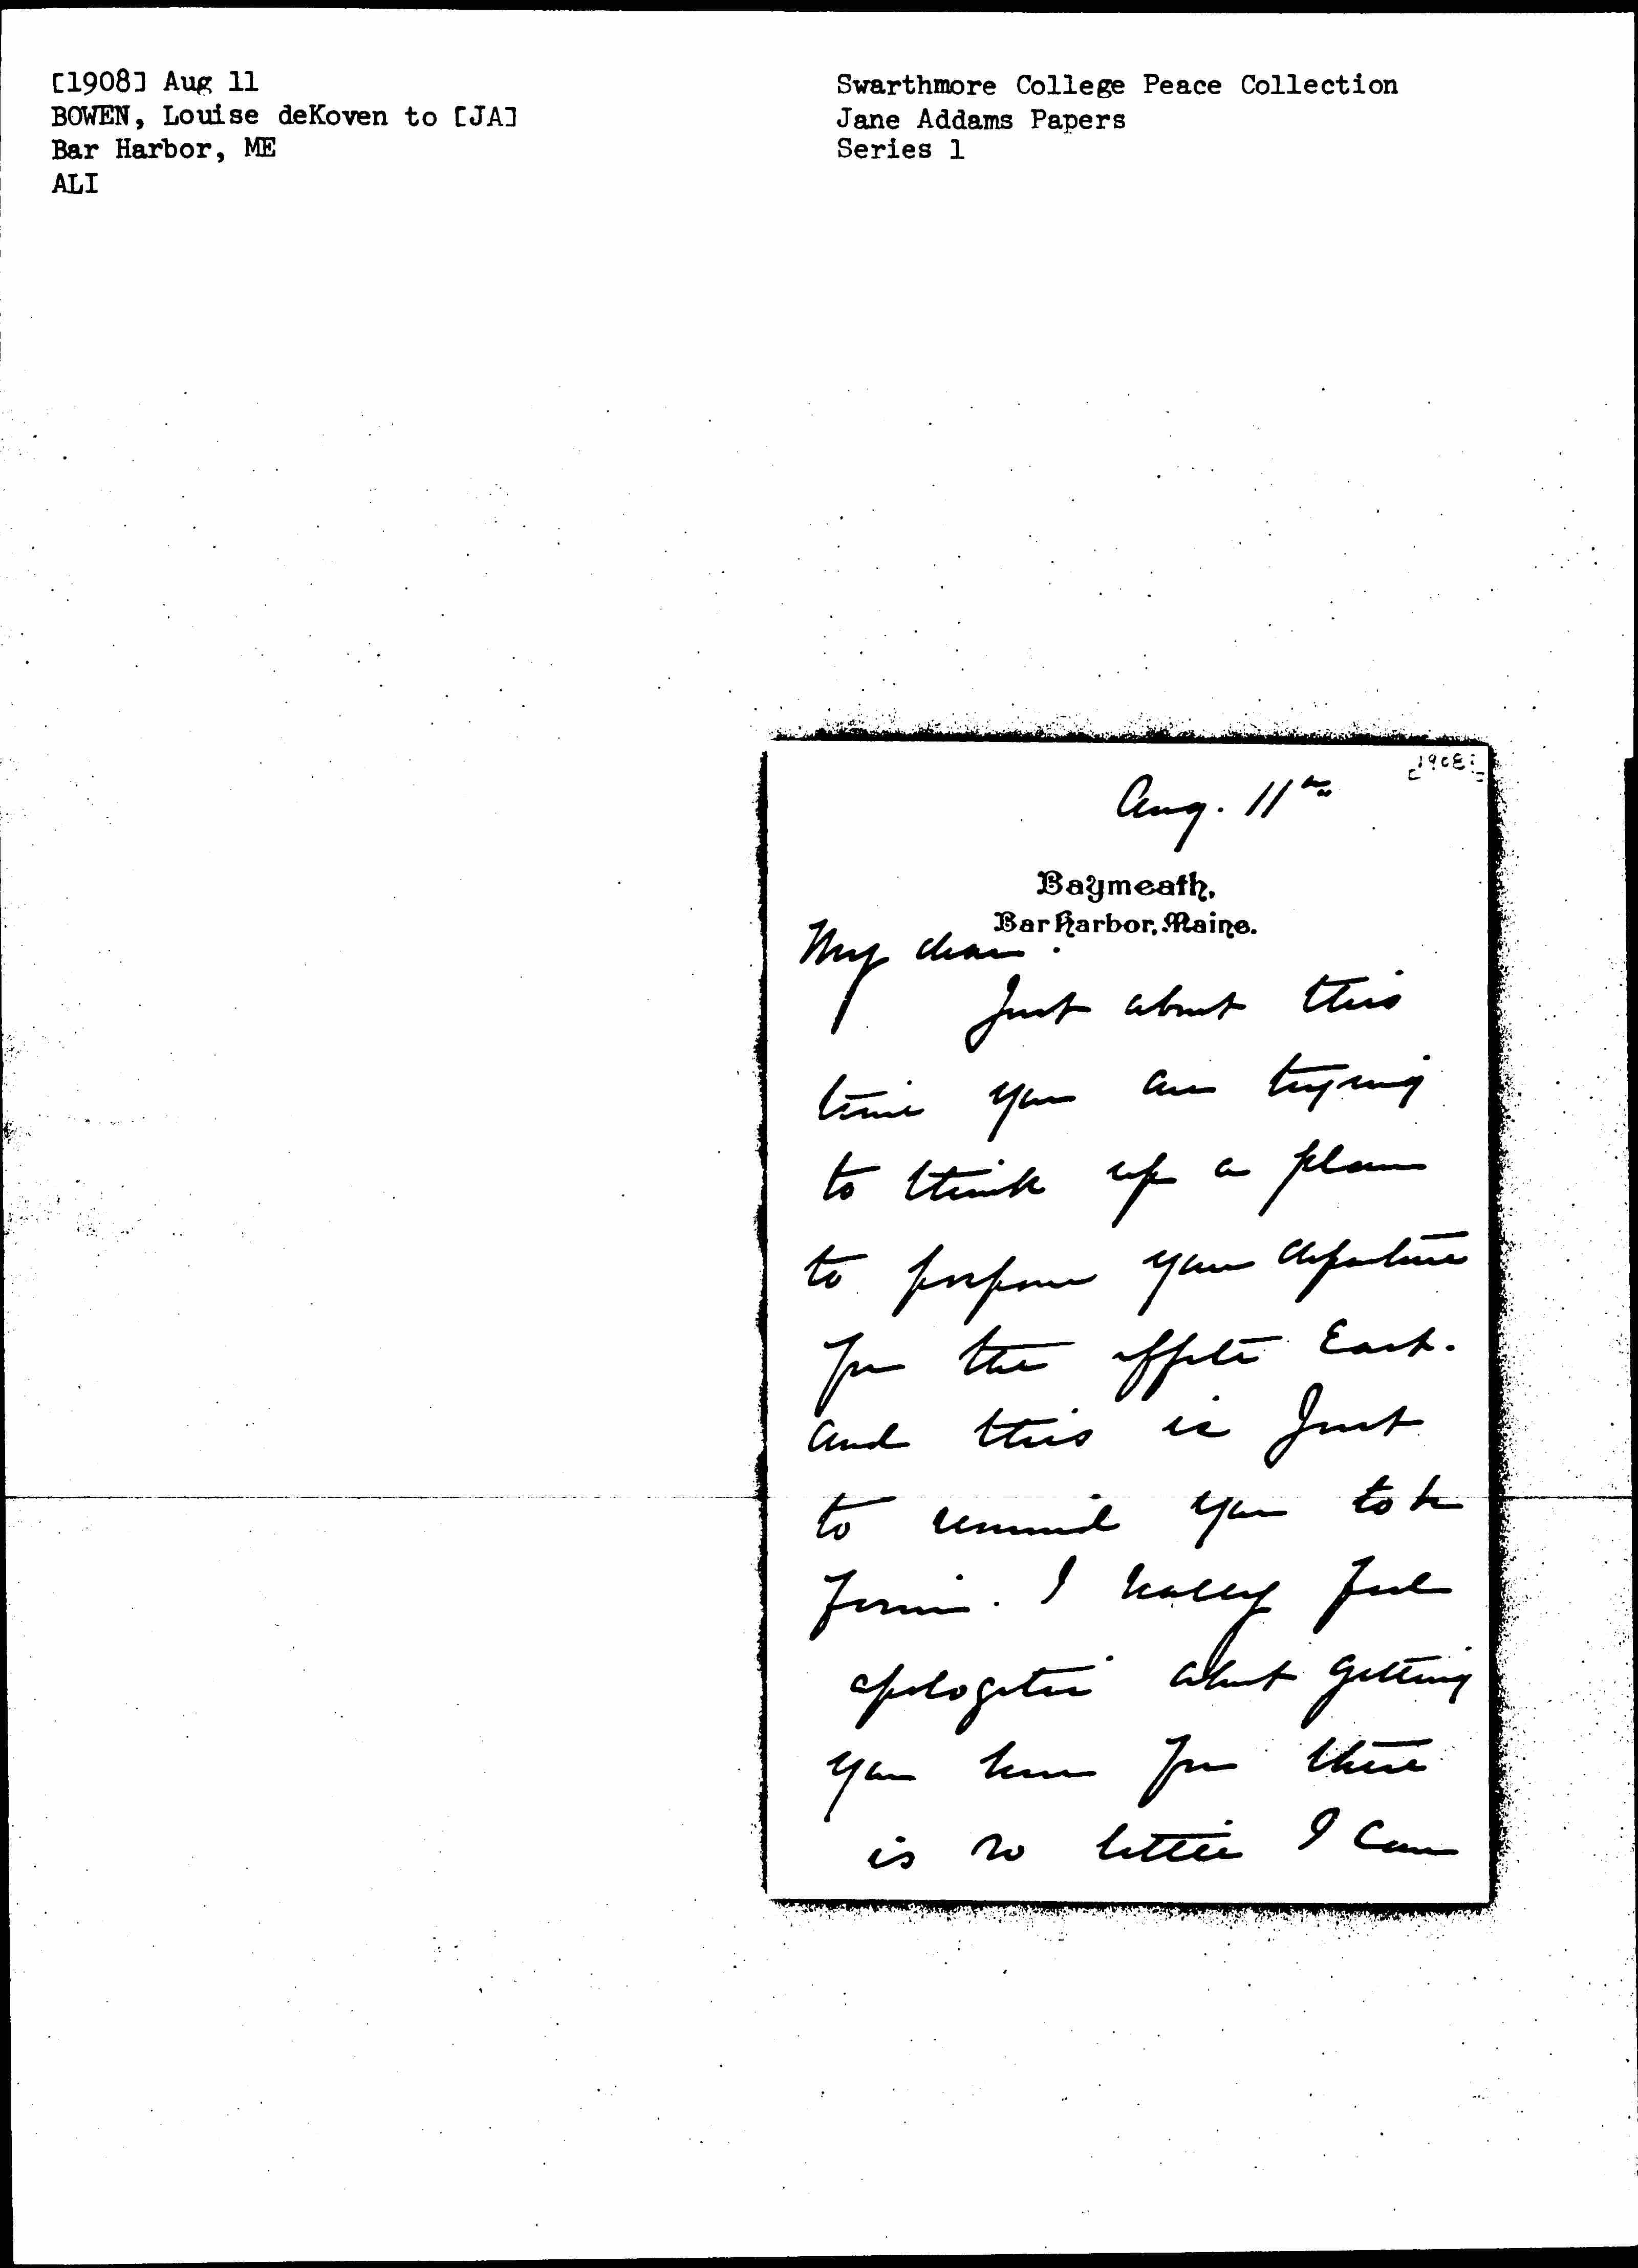 [1908] Aug 11
BOWEN, Louise deKoven to [JA]
Bar Harbor, ME
ALI
Swarthmore College Peace Collection
Jane Addams Papers
Series 1
[1908?]
Aug. 11th
Baymeath,
Bar Harbor, Maine.
My dear.
Just about this
time you are trying
to think up a plan
to pospone your departure
for the effete East.
and this is Just
to remind you to be
firm. I really feel
apologetic about getting
you here for there
is so little I can